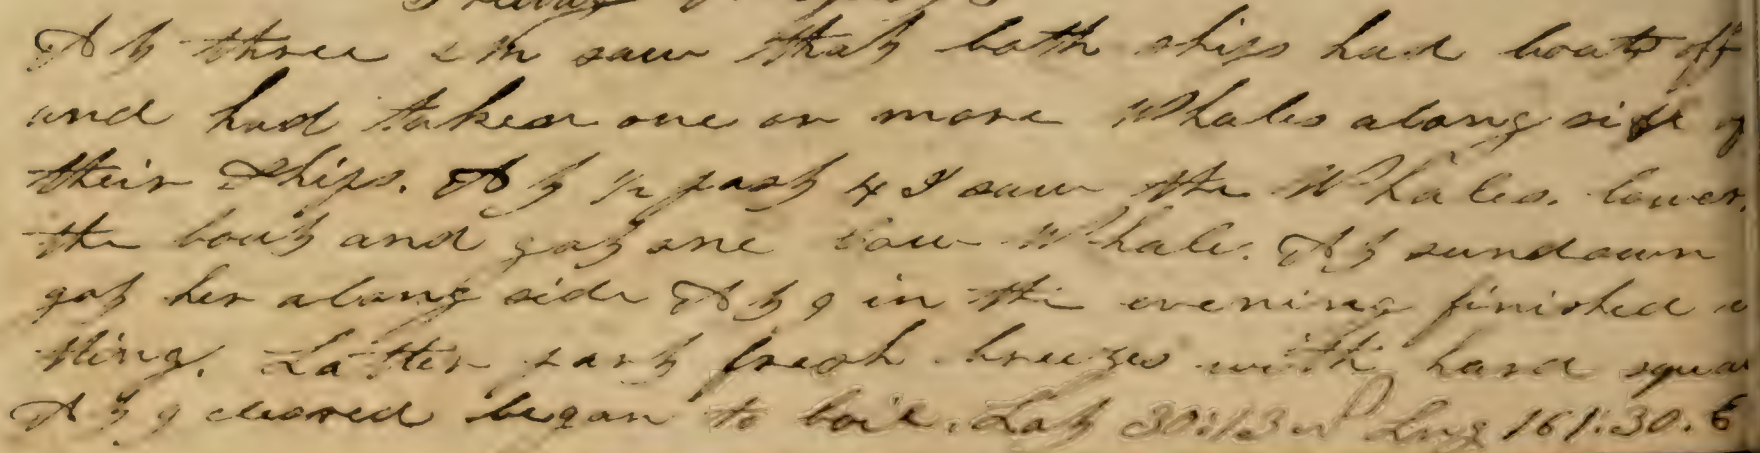 At three PM saw that both ships had boats off
and had taken one or more Whales along side of
their Ships. At 1/2 past 4 I saw the Whales. lower
the boat and got one Cow Whale. At sundown
got her along side At 9 in the evening finished
tting. Latter part fresh breezes with hard squa
At 9 cleared began to boil. Lat 30:13 N Long 161:30. E